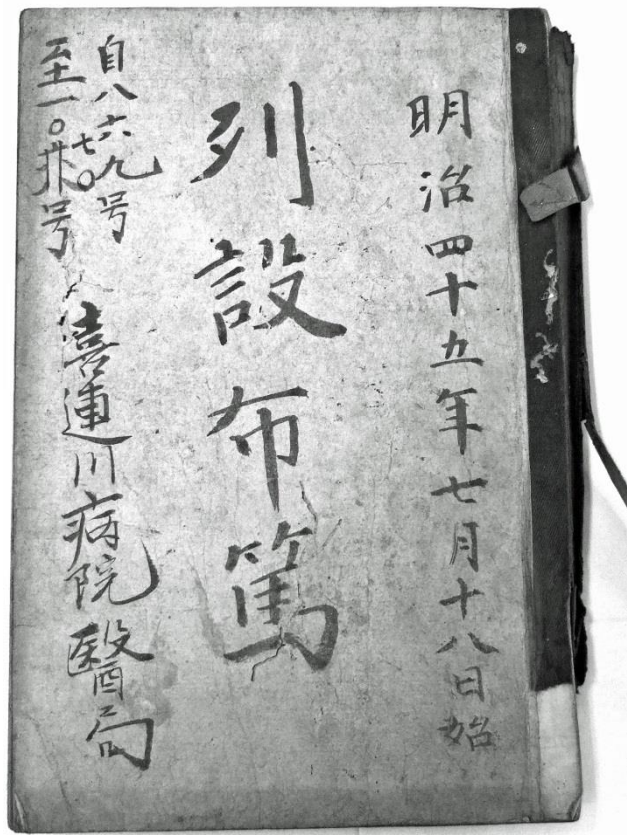 明治四十五年七月十八日始
列設布篤
自八六九号
至一〇七〇号
喜連川病院醫局